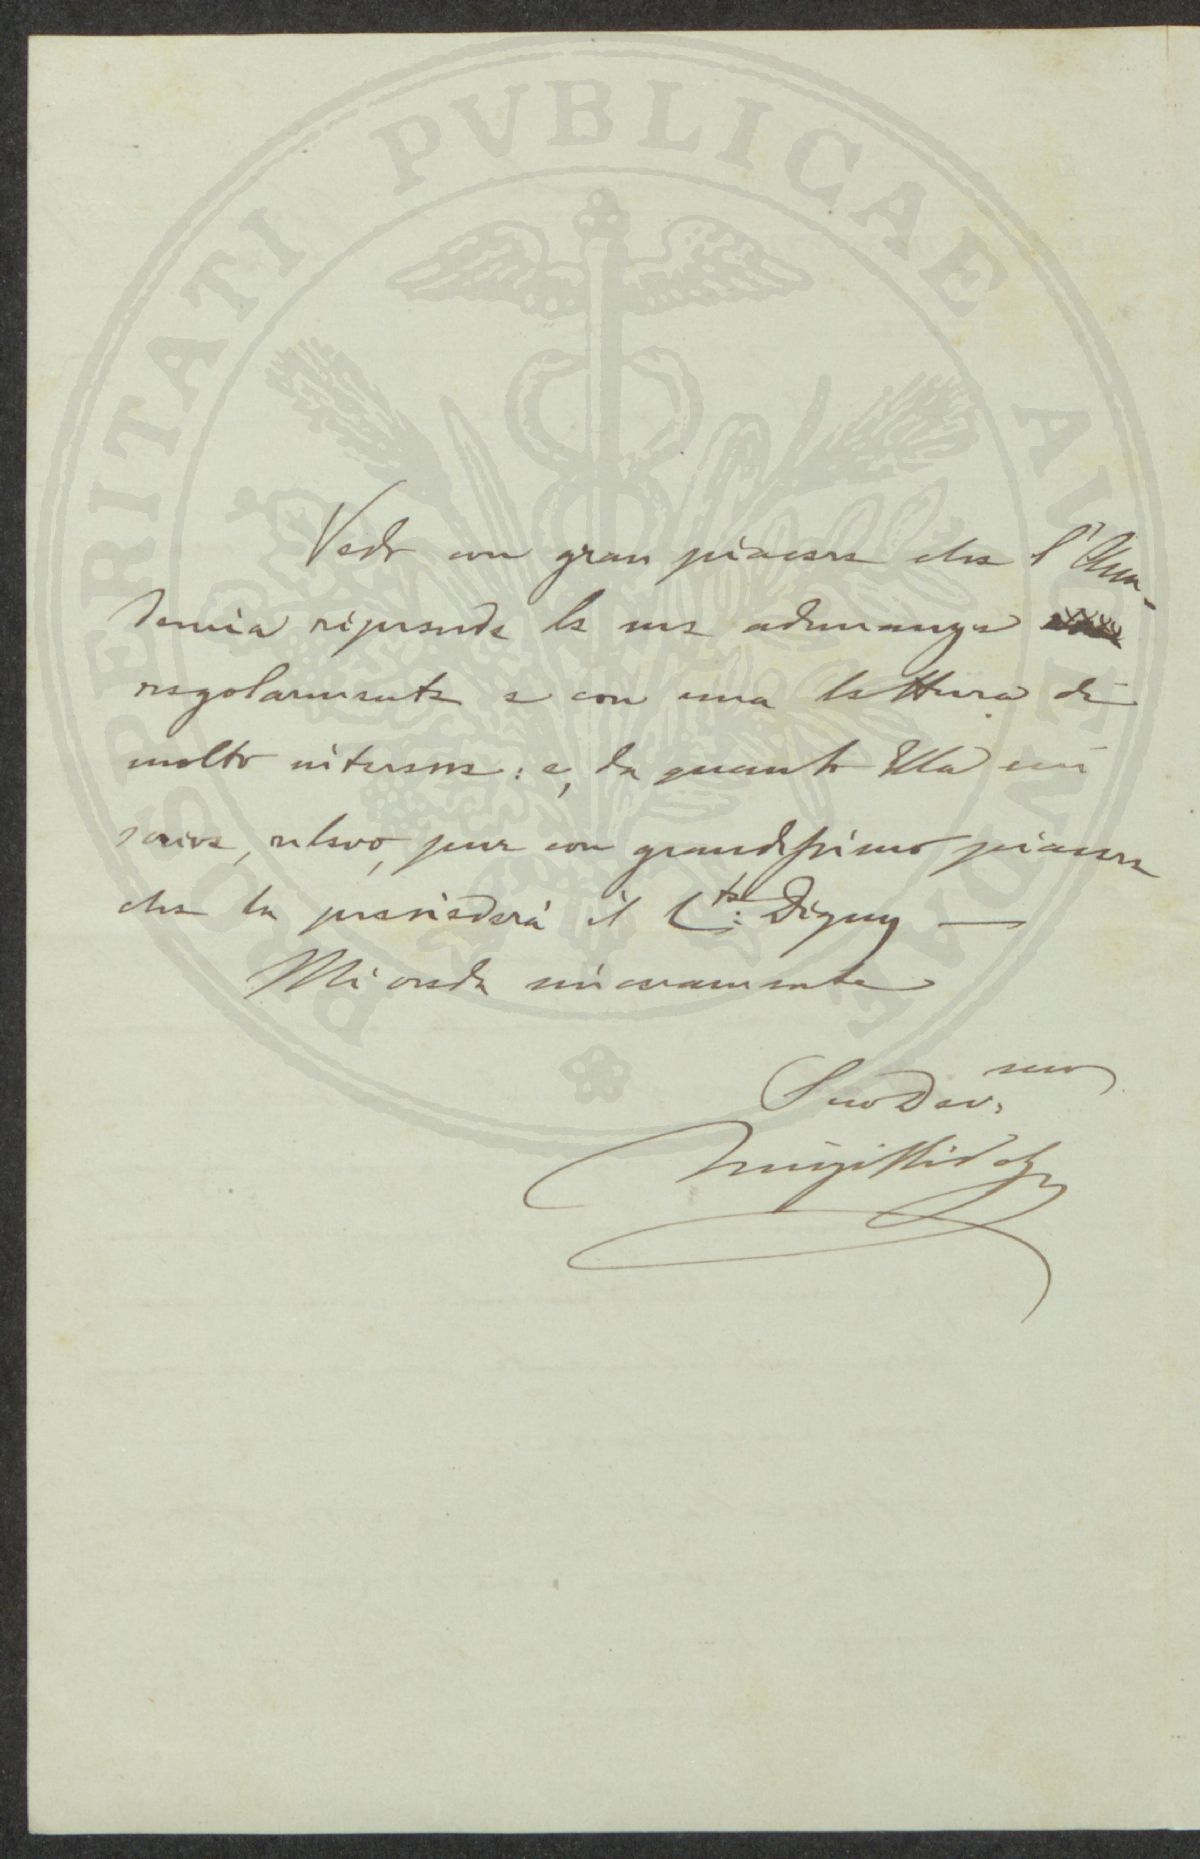 PROSPERITATI PVBLICAE AVGENDAE
Vedo con gran piacere che l'Acca-
demia riprende le sue adunanze
regolarmente e con una lettura di
molto interesse: e, da quanto Ella mi
scrive, rilevo, pure con grandissimo piacere
che la presiederà il C.te Digny —
Mi creda sinceramente
Suo Dev.mo
Luigi Ridolfi